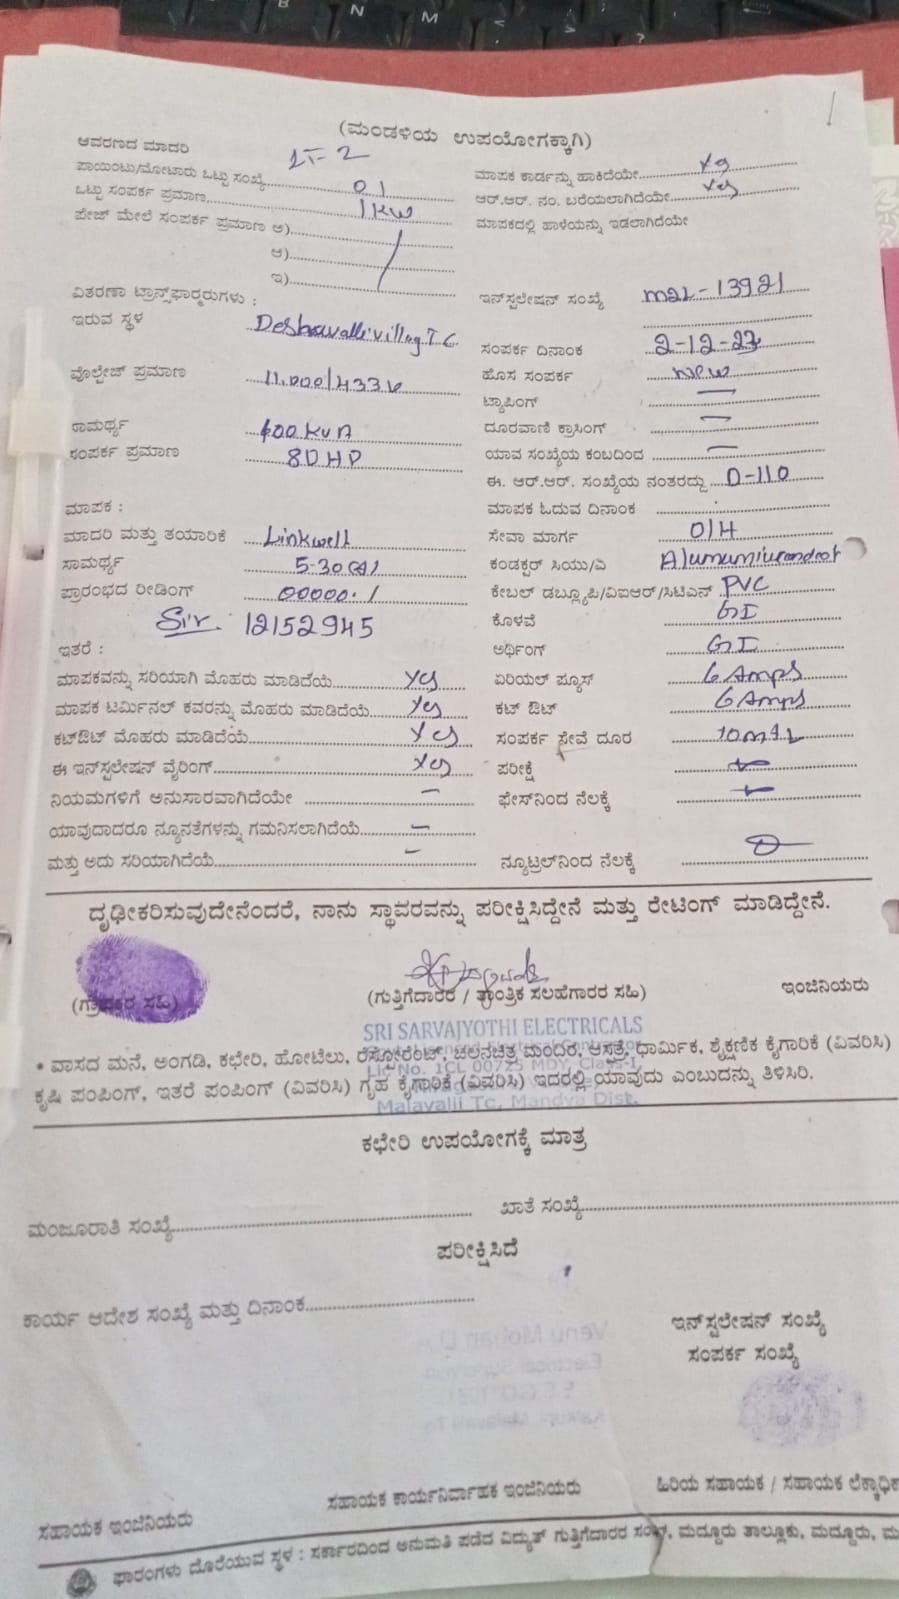 (ಮಂಡಳಿಯ ಉಪಯೋಗಕ್ಕಾಗಿ)
ಆವರಣದ ಮಾದರಿ LT-2
ಪಾಯಿಂಟು/ಮೋಟಾರು ಒಟ್ಟು ಸಂಖ್ಯೆ 01 ಮಾಪಕ ಕಾರ್ಡನ್ನು ಹಾಕಿದೆಯೇ Yes
ಒಟ್ಟು ಸಂಪರ್ಕ ಪ್ರಮಾಣ 1KW ಆರ್.ಆರ್. ನಂ. ಬರೆಯಲಾಗಿದೆಯೇ Yes
ಪೇಜ್ ಮೇಲೆ ಸಂಪರ್ಕ ಪ್ರಮಾಣ ಅ) ಮಾಪಕದಲ್ಲಿ ಹಾಳೆಯನ್ನು ಇಡಲಾಗಿದೆಯೇ
ಆ)
ಇ)
ವಿತರಣಾ ಟ್ರಾನ್ಸ್‌ಫಾರ್ಮರುಗಳು : ಇನ್‌ಸ್ಟಲೇಷನ್ ಸಂಖ್ಯೆ M2L-13921
ಇರುವ ಸ್ಥಳ
ಸಂಪರ್ಕ ದಿನಾಂಕ 2-12-22
ವೋಲ್ಟೇಜ್ ಪ್ರಮಾಣ ಹೊಸ ಸಂಪರ್ಕ new
ಟ್ಯಾಪಿಂಗ್ —
ಸಾಮರ್ಥ್ಯ 100 KVA ದೂರವಾಣಿ ಕ್ರಾಸಿಂಗ್ —
ಸಂಪರ್ಕ ಪ್ರಮಾಣ 80 HP ಯಾವ ಸಂಖ್ಯೆಯ ಕಂಬದಿಂದ —
ಈ. ಆರ್.ಆರ್. ಸಂಖ್ಯೆಯ ನಂತರದ್ದು D-110
ಮಾಪಕ : ಮಾಪಕ ಓದುವ ದಿನಾಂಕ
ಮಾದರಿ ಮತ್ತು ತಯಾರಿಕೆ Linkwell ಸೇವಾ ಮಾರ್ಗ O/H
ಸಾಮರ್ಥ್ಯ 5-30 ಕಂಡಕ್ಟರ್ ಸಿಯು/ವಿ
ಪ್ರಾರಂಭದ ರೀಡಿಂಗ್ 00000.1 ಕೇಬಲ್ ಡಬ್ಲ್ಯೂಪಿ/ವಿಐಆರ್/ಸಿಟಿಎನ್ PVC
12152945 ಕೊಳವೆ GI
ಇತರೆ : ಅರ್ಥಿಂಗ್ GI
ಮಾಪಕವನ್ನು ಸರಿಯಾಗಿ ಮೊಹರು ಮಾಡಿದೆಯೆ Yes ಏರಿಯಲ್ ಫ್ಯೂಸ್ 6 Amps
ಮಾಪಕ ಟರ್ಮಿನಲ್ ಕವರನ್ನು ಮೊಹರು ಮಾಡಿದೆಯೆ Yes ಕಟ್ ಔಟ್ 6 Amps
ಕಟ್‌ಔಟ್ ಮೊಹರು ಮಾಡಿದೆಯೆ Yes ಸಂಪರ್ಕ ಸೇವೆ ದೂರ
ಈ ಇನ್‌ಸ್ಟಲೇಷನ್ ವೈರಿಂಗ್ Yes ಪರೀಕ್ಷೆ
ನಿಯಮಗಳಿಗೆ ಅನುಸಾರವಾಗಿದೆಯೇ — ಫೇಸ್‌ನಿಂದ ನೆಲಕ್ಕೆ
ಯಾವುದಾದರೂ ನ್ಯೂನತೆಗಳನ್ನು ಗಮನಿಸಲಾಗಿದೆಯೆ —
ಮತ್ತು ಅದು ಸರಿಯಾಗಿದೆಯೆ — ನ್ಯೂಟ್ರಲ್‌ನಿಂದ ನೆಲಕ್ಕೆ
ದೃಢೀಕರಿಸುವುದೇನೆಂದರೆ, ನಾನು ಸ್ಥಾವರವನ್ನು ಪರೀಕ್ಷಿಸಿದ್ದೇನೆ ಮತ್ತು ರೇಟಿಂಗ್ ಮಾಡಿದ್ದೇನೆ.
(ಗ್ರಾಹಕರ ಸಹಿ) (ಗುತ್ತಿಗೆದಾರರ / ತಾಂತ್ರಿಕ ಸಲಹೆಗಾರರ ಸಹಿ) ಇಂಜಿನಿಯರು
SRI SARVAJYOTHI ELECTRICALS
* ವಾಸದ ಮನೆ, ಅಂಗಡಿ, ಕಛೇರಿ, ಹೋಟೆಲು, ರೆಸ್ಟೋರೆಂಟ್, ಚಲನಚಿತ್ರ ಮಂದಿರ, ಆಸ್ಪತ್ರೆ, ಧಾರ್ಮಿಕ, ಶೈಕ್ಷಣಿಕ ಕೈಗಾರಿಕೆ (ವಿವರಿಸಿ)
Lic No. 1CL 00725 MDY, Class-I,
ಕೃಷಿ ಪಂಪಿಂಗ್, ಇತರೆ ಪಂಪಿಂಗ್ (ವಿವರಿಸಿ) ಗೃಹ ಕೈಗಾರಿಕೆ (ವಿವರಿಸಿ) ಇದರಲ್ಲಿ ಯಾವುದು ಎಂಬುದನ್ನು ತಿಳಿಸಿರಿ.
Malavalli Tq, Mandya Dist.
ಕಛೇರಿ ಉಪಯೋಗಕ್ಕೆ ಮಾತ್ರ
ಮಂಜೂರಾತಿ ಸಂಖ್ಯೆ ಖಾತೆ ಸಂಖ್ಯೆ
ಪರೀಕ್ಷಿಸಿದೆ
ಕಾರ್ಯ ಆದೇಶ ಸಂಖ್ಯೆ ಮತ್ತು ದಿನಾಂಕ
ಇನ್‌ಸ್ಟಲೇಷನ್ ಸಂಖ್ಯೆ
ಸಂಪರ್ಕ ಸಂಖ್ಯೆ
ಸಹಾಯಕ ಇಂಜಿನಿಯರು ಸಹಾಯಕ ಕಾರ್ಯನಿರ್ವಾಹಕ ಇಂಜಿನಿಯರು ಹಿರಿಯ ಸಹಾಯಕ / ಸಹಾಯಕ
ಫಾರಂಗಳು ದೊರೆಯುವ ಸ್ಥಳ : ಸರ್ಕಾರದಿಂದ ಅನುಮತಿ ಪಡೆದ ವಿದ್ಯುತ್ ಗುತ್ತಿಗೆದಾರರ ಸಂಘ, ಮದ್ದೂರು ತಾಲ್ಲೂಕು, ಮದ್ದೂರು,